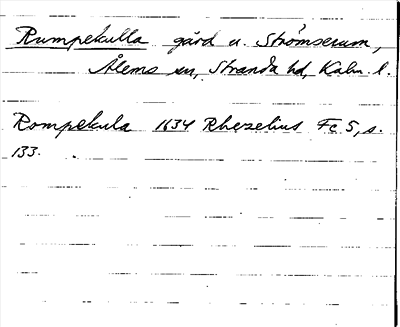 Rumpekulla gård u. Strömserum,
Ålems sn, Stranda hd, Kalm. l.
Rompekula 1634 Rhezelius Fc 5, s.
133.